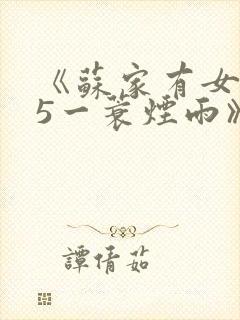 《蘇家有女
5一蓑煙雨》
譚倩茹